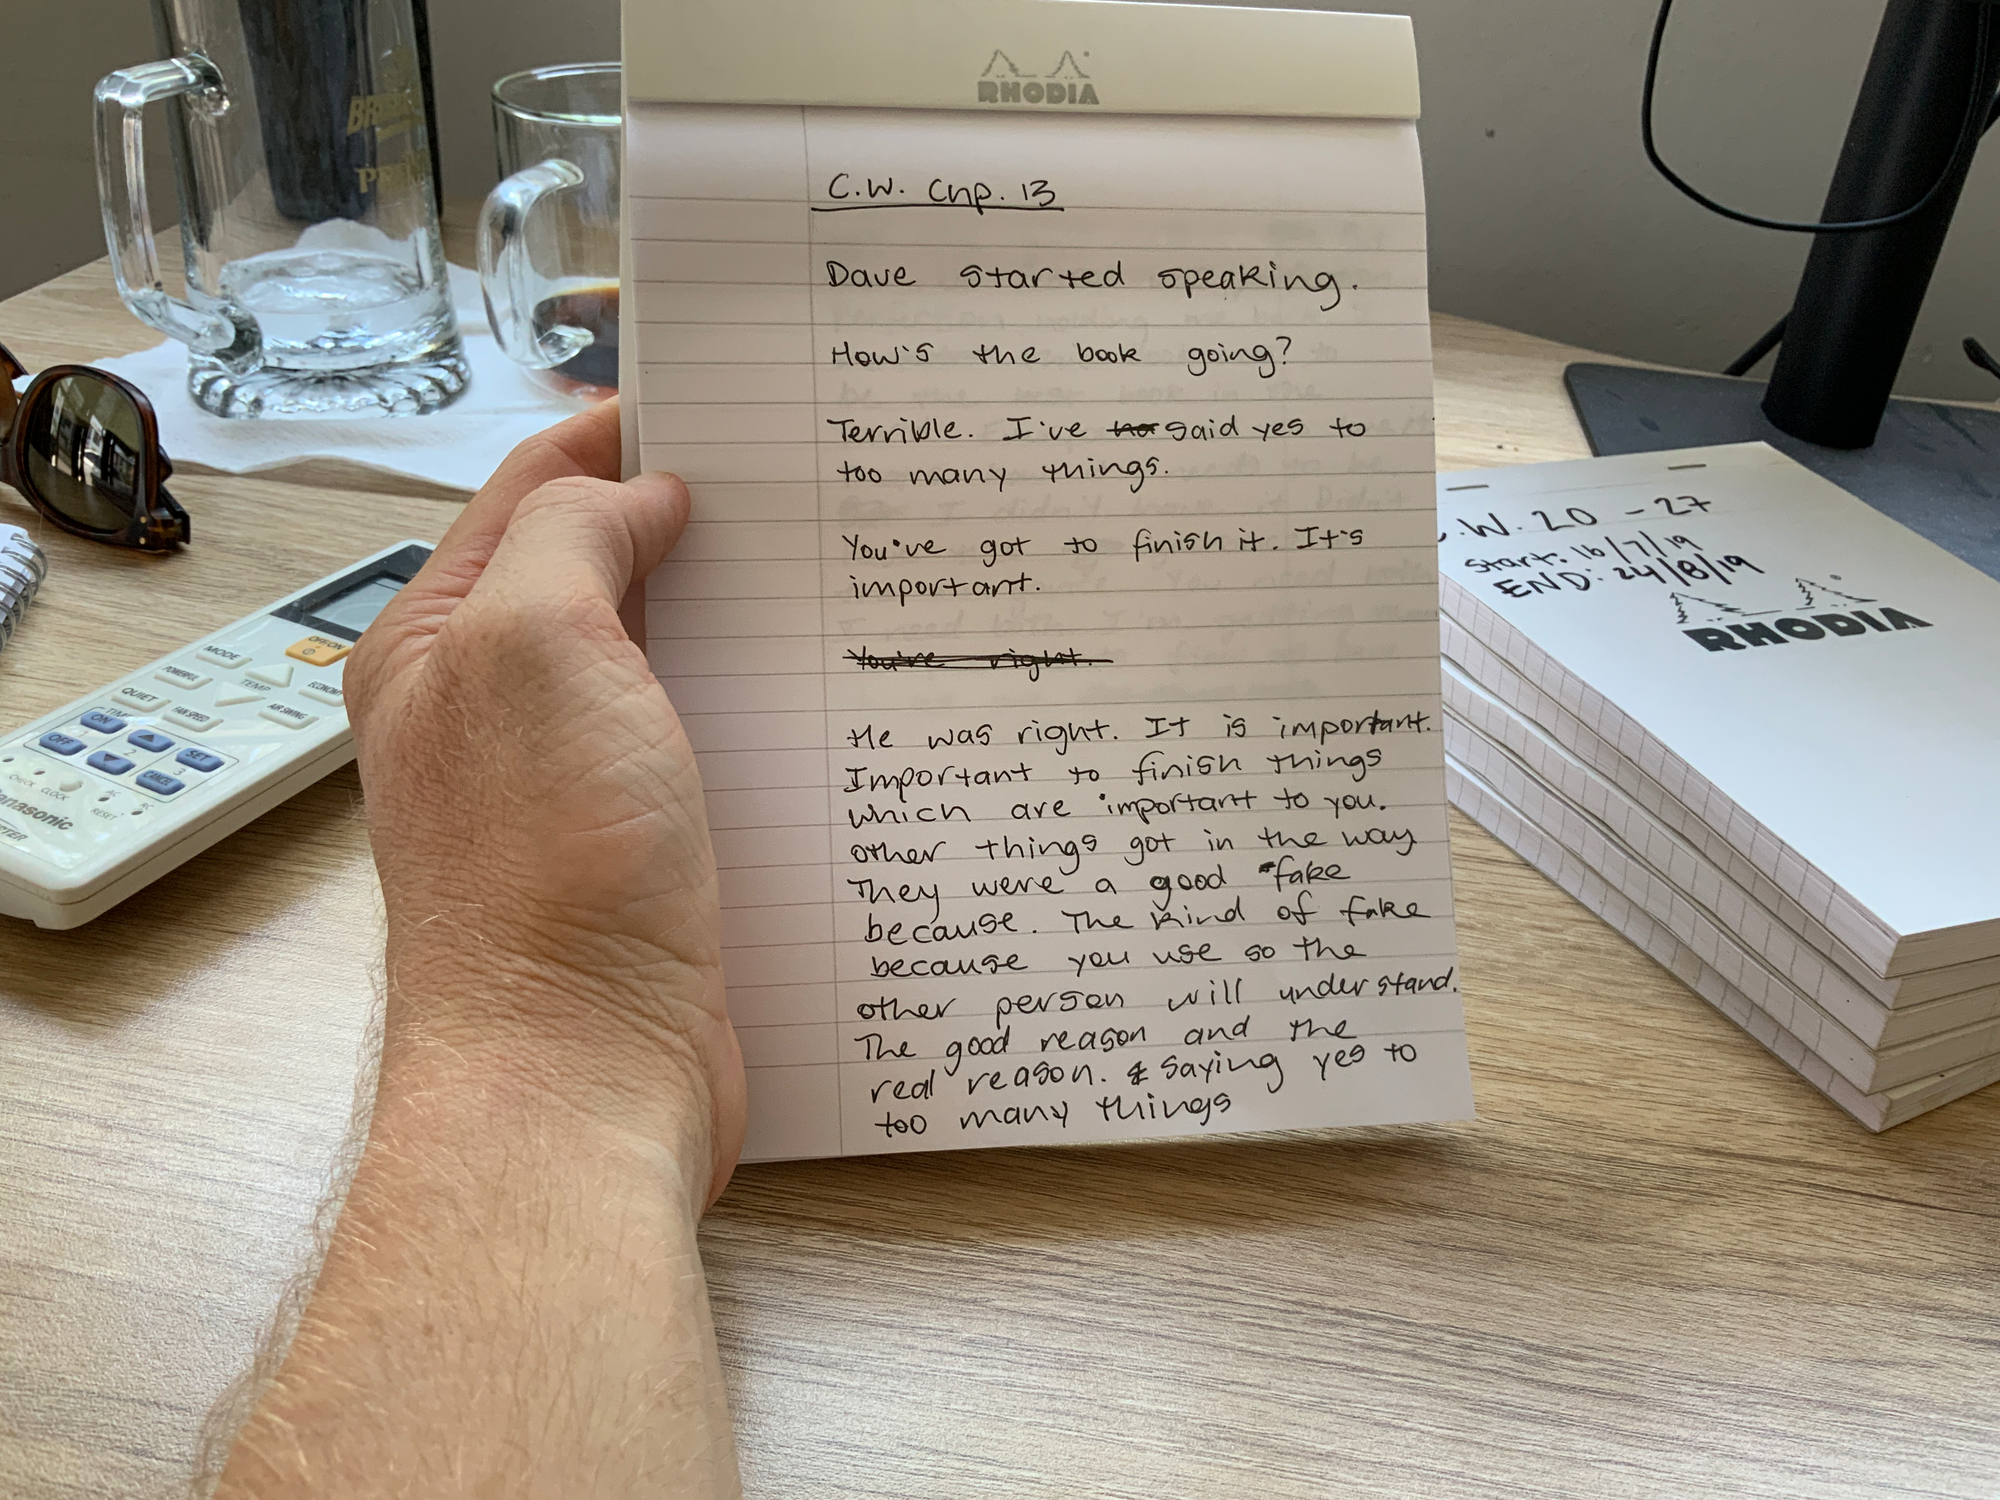 RHODIA
C.W. Chp. 13
Dave started speaking.
How's the book going?
Terrible. I've said yes to
too many things.
You've got to finish it. It's
important.
You're right.
He was right. It is important.
Important to finish things
which are important to you.
other things got in the way
They were a good fake
because. The kind of fake
because you use so the
other person will understand.
The good reason and the
real reason. & saying yes to
too many things
.W. 20 - 27
Start: 16/7/19
END: 24/8/19
RHODIA
OFF/ON
MODE
POWERFUL
TEMP
ECONOMY
QUIET
FAN SPEED
AIR SWING
ON
OFF
SET
CANCEL
1
2
3
CHECK CLOCK
AC
RC
RESET
anasonic